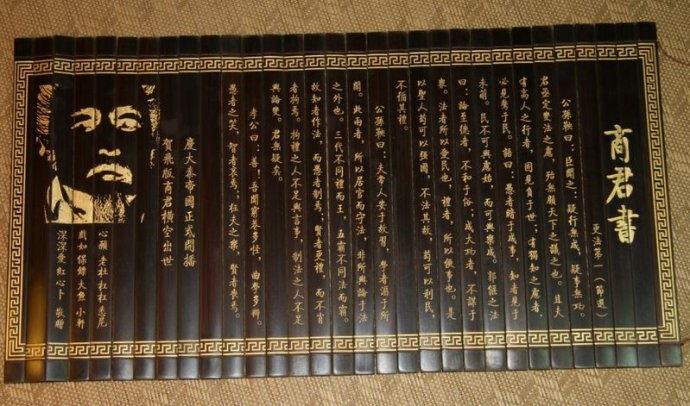 商君書
更法第一（節選）
公孫鞅曰：臣聞之，疑行無成，疑事無功。
君亟定變法之慮，殆無顧天下之議之也。且夫
有高人之行者，固見負于世；有獨知之慮者
必見訾于民。語曰：愚者暗于成事，知者見于
未萌。民不可與慮始，而可與樂成。郭偃之法
曰：論至德者，不和于俗；成大功者，不謀于
衆。法者所以愛民也，禮者，所以便事也。是
以聖人苟可以强國，不法其故，苟可以利民，
不循其禮。
公孫鞅曰：夫常人安于故習，學者溺于所
聞。此兩者，所以居官而守法，非所與論于法
之外也。三代不同禮而王，五霸不同法而霸。
故知者作法，而愚者制焉；賢者更禮，而不肖
者拘焉。拘禮之人不足與言事，制法之人不足
與論變。君無疑矣。
孝公曰：善！吾聞窮巷多怪，曲學多辯。
愚者之笑，智者哀焉；狂夫之樂，賢者喪焉。
慶大秦帝國正式開播
賀飛版商君橫空出世
心願 老杜 杜杜 悉尼
蔚如 保錦 大魚 小軒
深深愛 紅心卜 敬贈